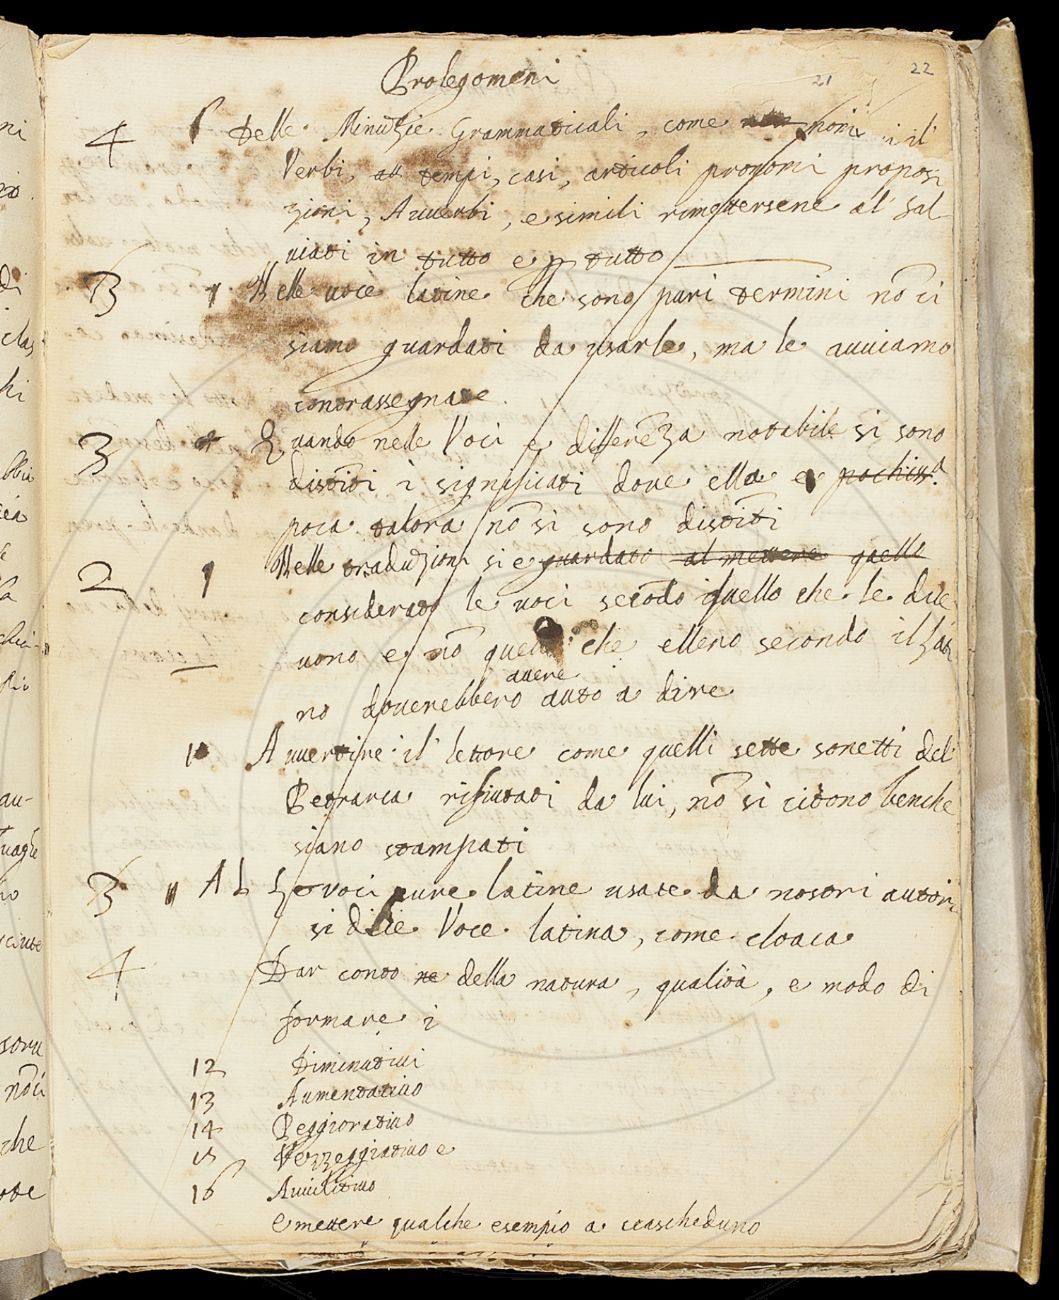 Prolegomeni
21 22
4 Delle Minutzie Grammaticali, come nomi, il
Verbi, tempi, casi, articoli pronomi proposi
zioni, Auuerbi, e simili rimettersene al Sal
uiati in tutto e p tutto
3 Nelle uoce latine che sono puri termini nõ ci
siamo guardati da usarle, ma le auuiamo
contrassegnate.
3 Quando nelle Voci e differẽza notabile si sono
distĩti i significati doue ella e pochiss.a
poca talora nõ si sono distĩti
2 Nelle traduzioni si e guardato al mettere quello
considerato le uoci secõdo quello che le dice
uono e nõ quello che elleno secondo il Lati
auere
no douerebbero auto a dire
Auuertire il lettore come quelli sette sonetti del
Petrarca rifiutati da lui, nõ si citono benche
siano stampati
3 Le voci pure latine usate da nostri autori
si dicie Voce latina, come cloaca
4 Dar conto ne della natura, qualità, e modo di
formare i
12 Diminutiui
13 Aumentatiuo
14 Peggioratiuo
15 Vezzeggiatiuo e
16 Auuilitiuo
e mettere qualche esempio a ciascheduno